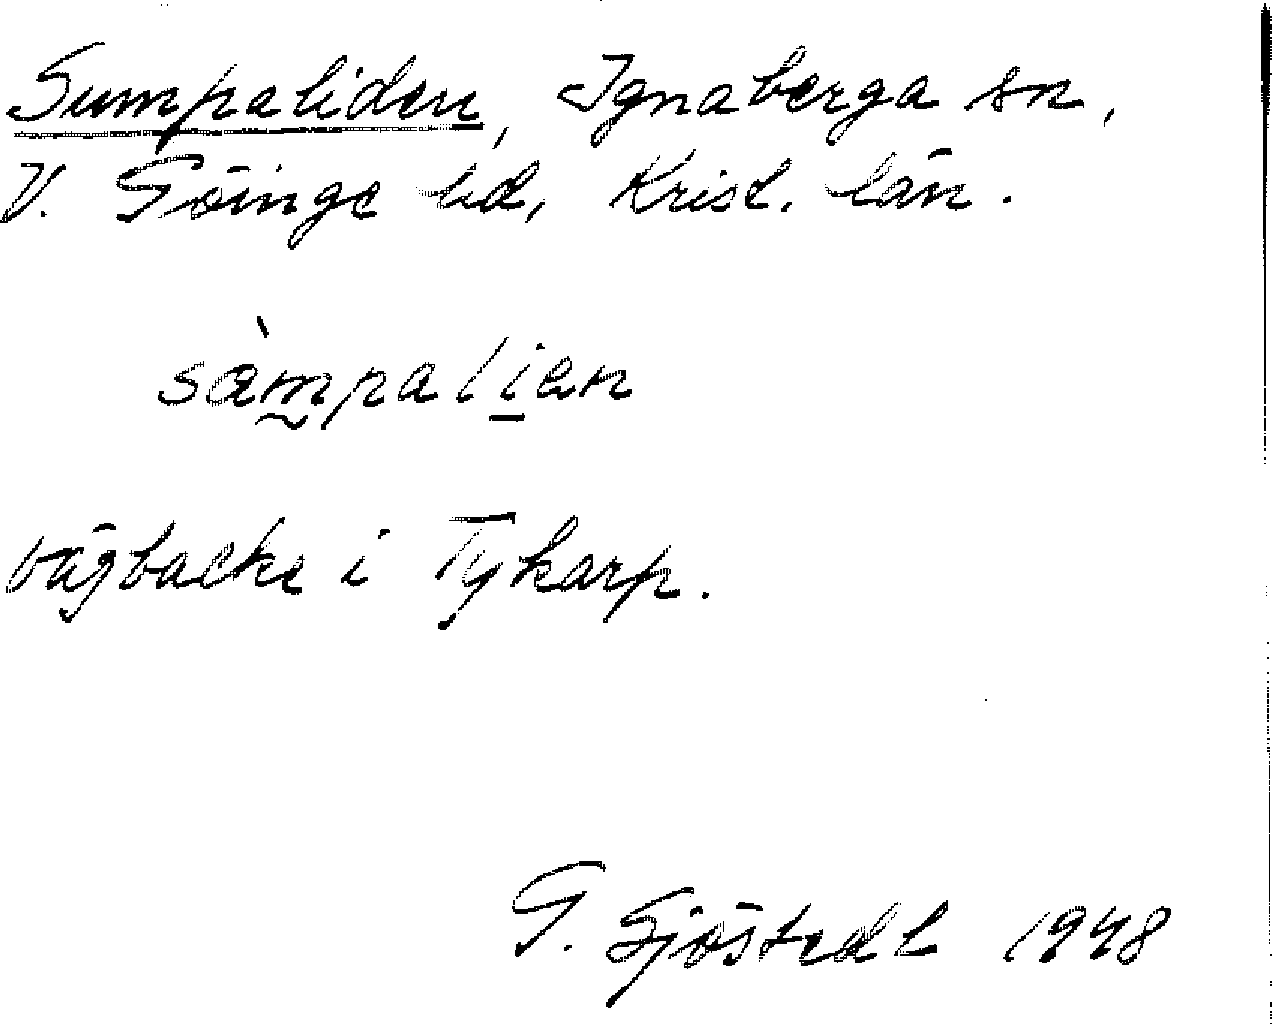 Sumpaliden, Ignaberga sn,
V. Göinge hd, Krist. län.
sæ̀mpalien
vägbacke i Tykarp.
G. Sjöstedt 1948